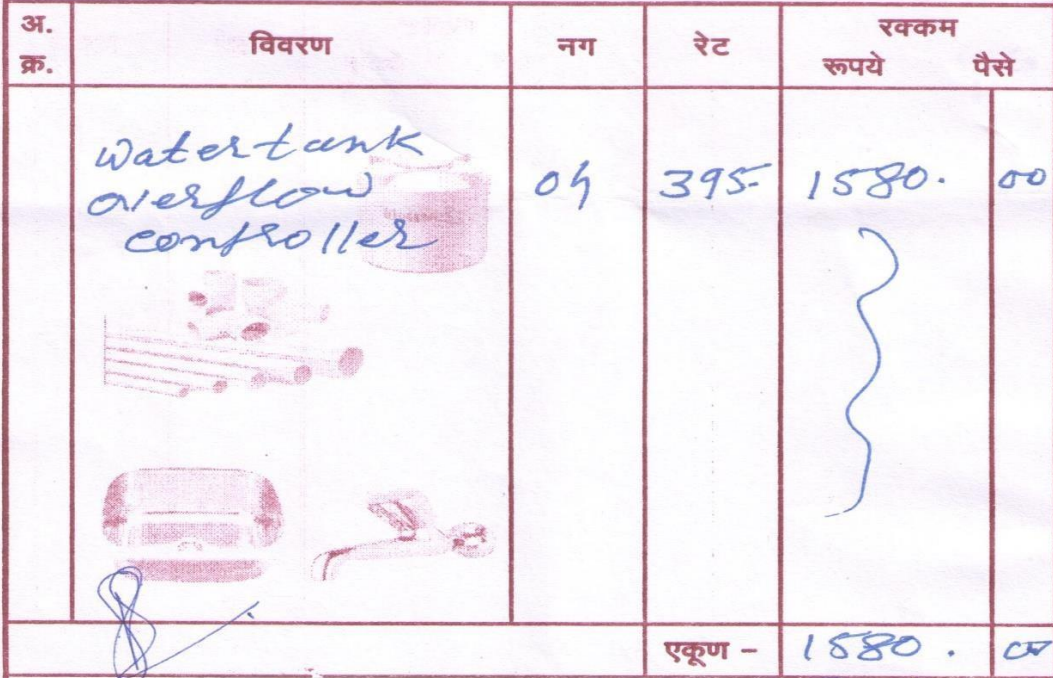 अ.
क्र.
विवरण
नग
रेट
रक्कम
रूपये पैसे
watertank
overflow
controller
04 395- 1580. 00
एकूण - 1580. 00